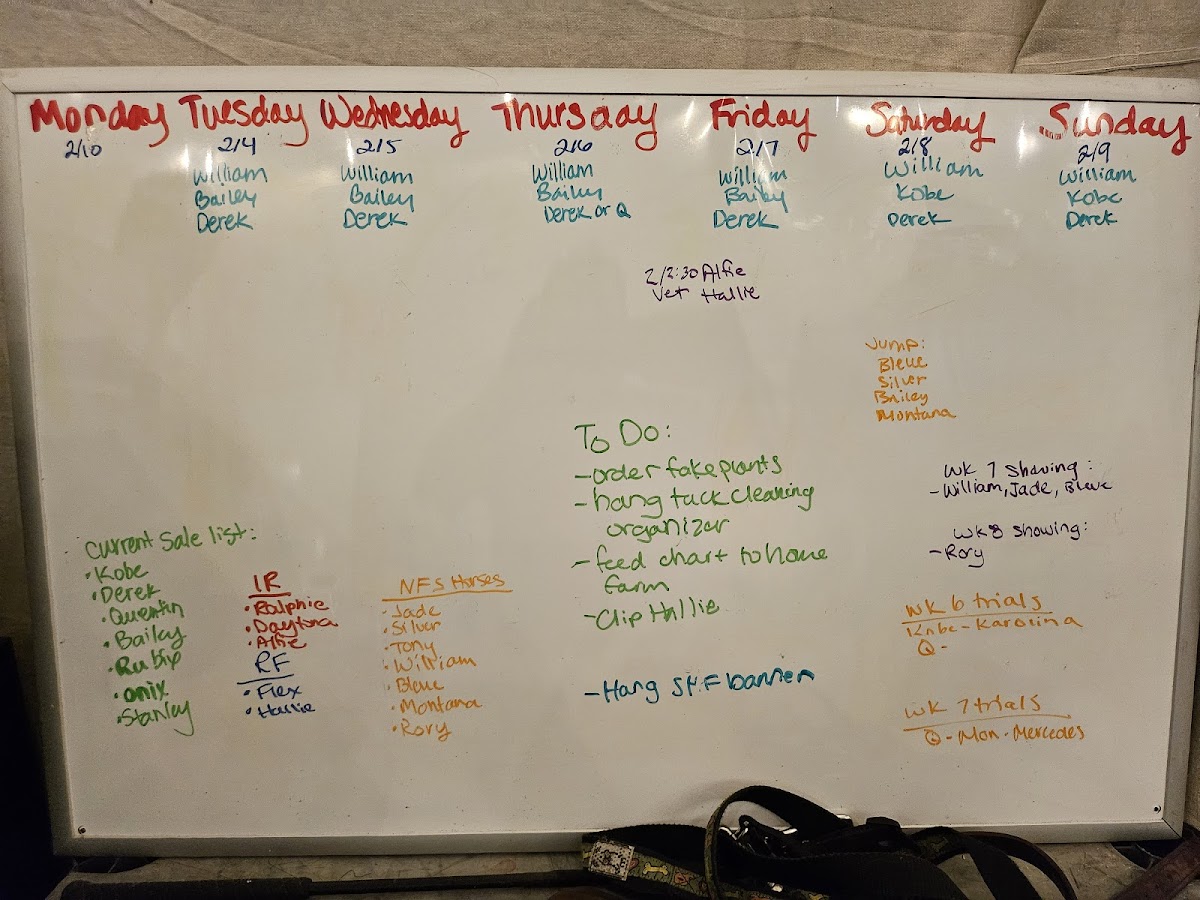 Monday Tuesday Wednesday Thursday Friday Saturday Sunday
2/10 2/4 2/5 2/6 2/7 2/8 2/9
William William William William William William
Bailey Bailey Bailey Bailey Kobe Kobe
Derek Derek Derek or Q Derek Derek Derek
2/2:30 Alfie
Vet Hallie
Jump:
Bleue
Silver
Bailey
Montana
To Do:
-order fake plants
-hang tack cleaning
organizer
-feed chart to home
farm
-Clip Hallie
-Hang SHF banner
Wk 7 Showing:
-William, Jade, Bleue
Wk 8 showing:
-Rory
Wk 6 trials
Kobe-Karolina
Q-
Wk 7 trials
Q-Mon-Mercedes
Current Sale list:
•Kobe
•Derek
•Quentin
•Bailey
•Rubix
•onix
•Stanley
IR
•Ralphie
•Daytona
•Alfie
RF
•Flex
•Hallie
NFS Horses
•Jade
•Silver
•Tony
•William
•Bleue
•Montana
•Rory